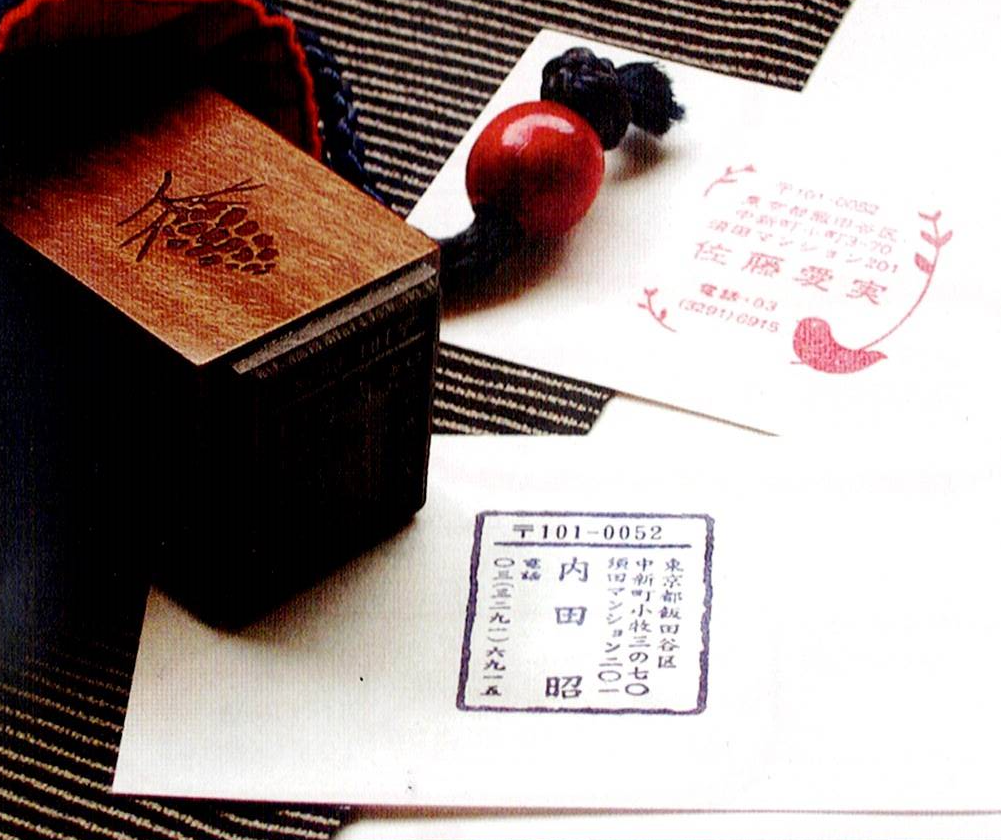 〒101-0052
東京都飯田谷区
中新町小牧3-70
須田マンション201
佐藤愛実
電話・03
(3291)6915
〒101-0052
東京都飯田谷区
中新町小牧三の七〇
須田マンション二〇一
内田昭
電話
〇三(三二九一)六九一五